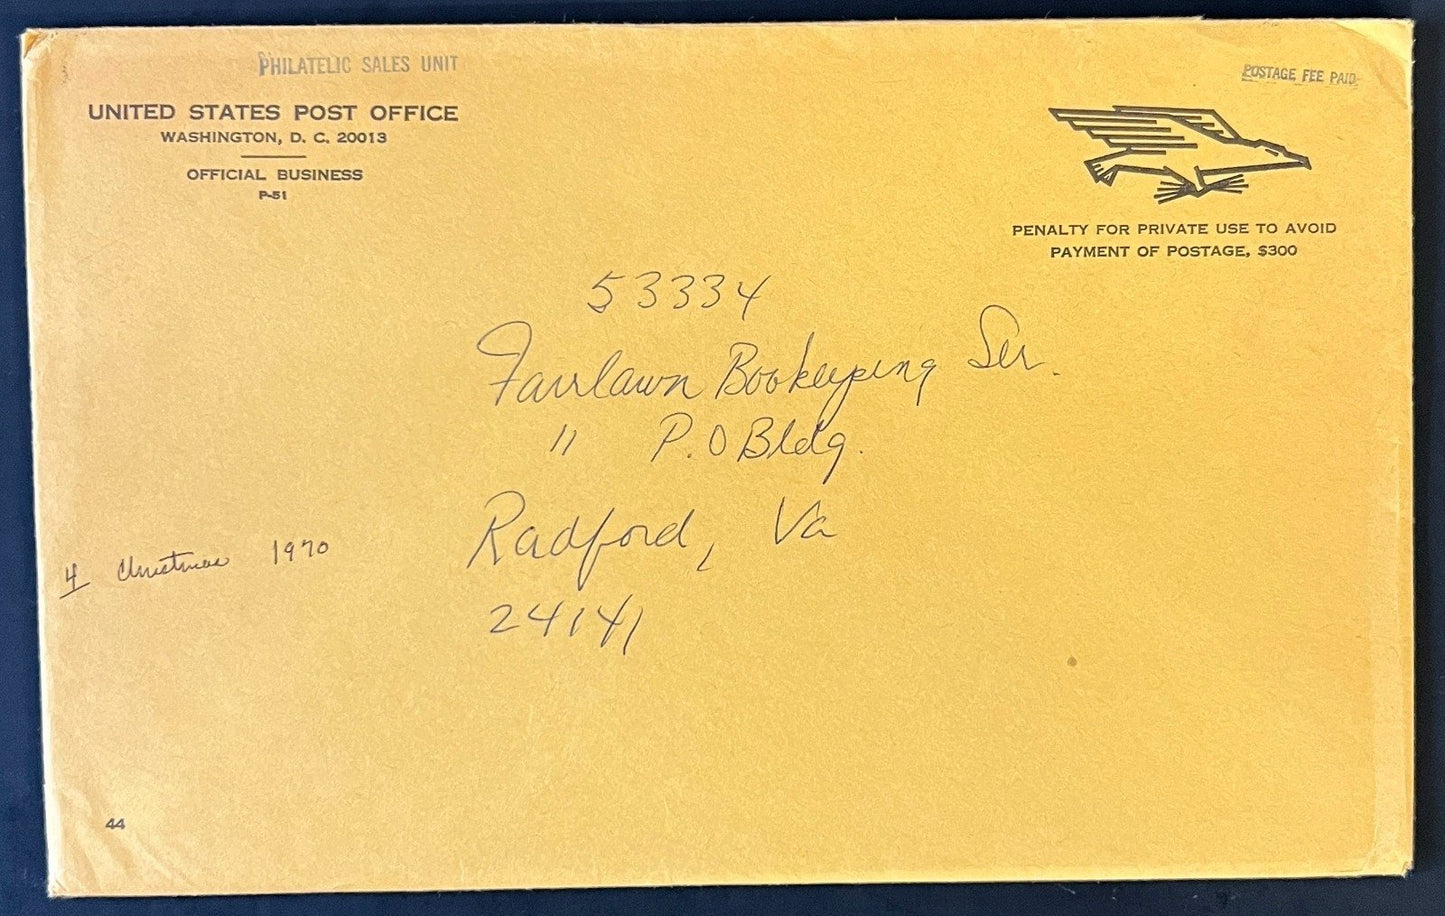 PHILATELIC SALES UNIT
UNITED STATES POST OFFICE
WASHINGTON, D. C. 20013
OFFICIAL BUSINESS
P-51
POSTAGE FEE PAID
PENALTY FOR PRIVATE USE TO AVOID
PAYMENT OF POSTAGE, $300
53334
Fairlawn Bookeeping Ser.
11 P.O Bldg.
Radford, Va
24141
4 Christmas 1970
44